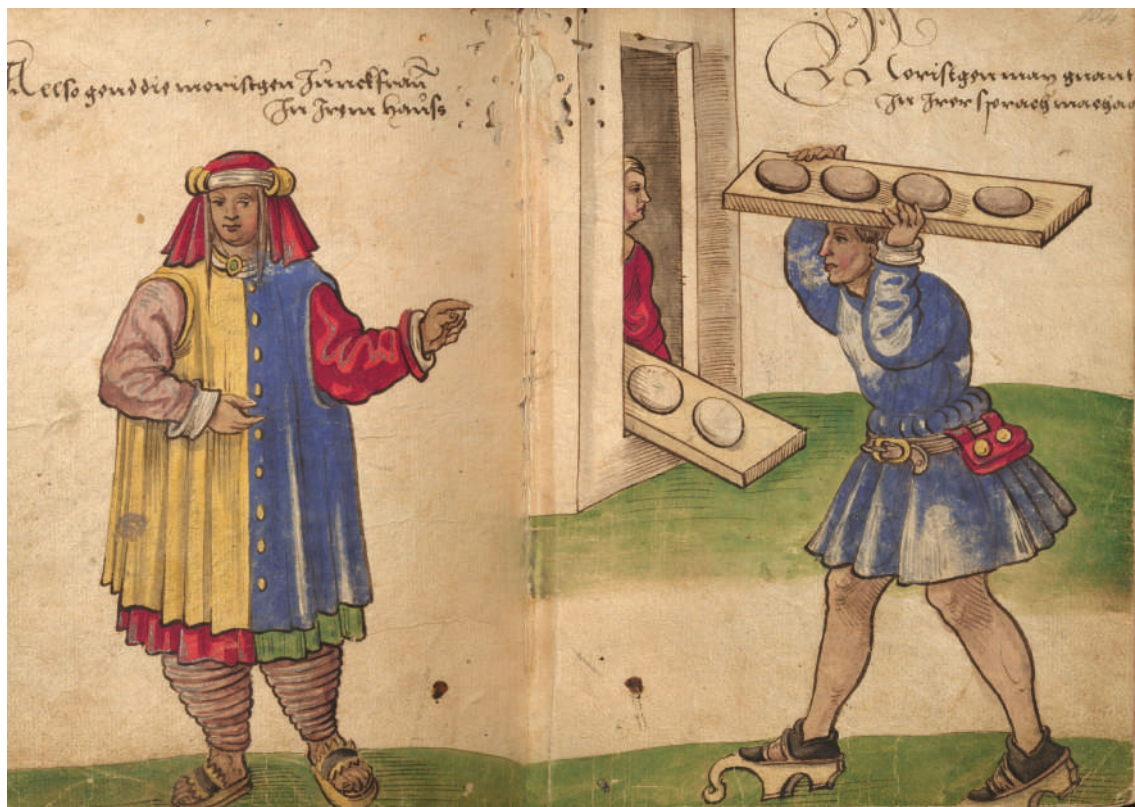 Allso gend die moristgen Junckfrau
In Irem Hauss
Moristgen man gnant
In Irer sprach machaa